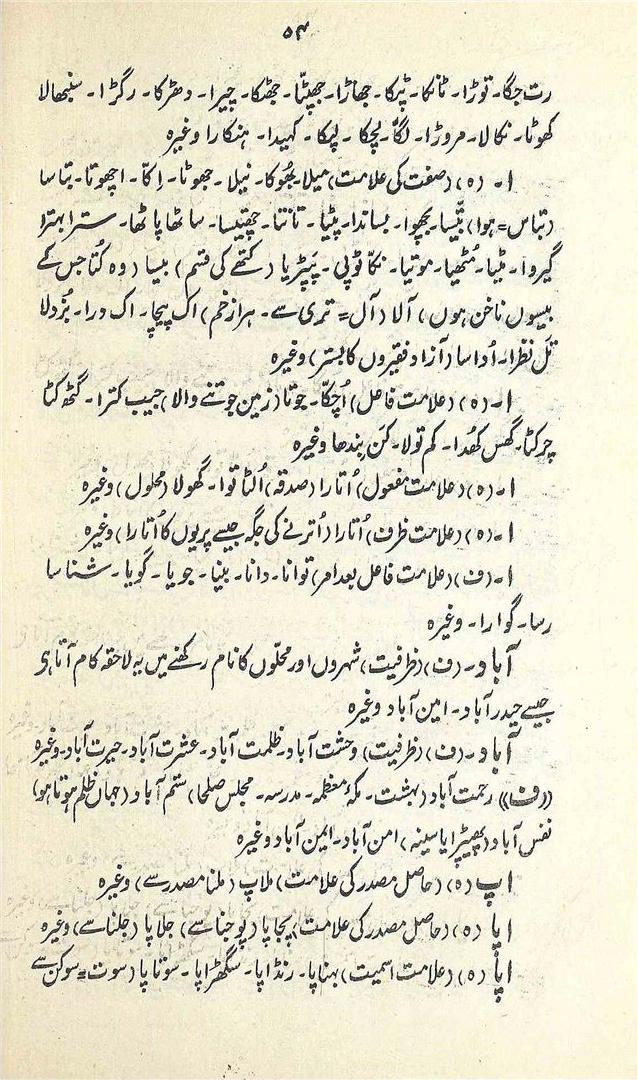 ۵۴
رت جگا۔ توڑا۔ ٹانکا۔ ٹپکا۔ جھاڑا۔ جھپٹا۔ جھٹکا۔ چیرا۔ دھڑکا۔ رگڑا۔ سنبھالا
کھوٹا۔ نکالا۔ مروڑا۔ لگّا۔ لچکا۔ لپکا۔ کہیدا۔ ہنکارا وغیرہ
ا۔ (ہ) (صفت کی علامت) میلا۔ بھُوکا۔ نیلا۔ جھوٹا۔ اِکّا۔ اچھوتا۔ بتاسا
(بتاس = ہوا) بتّیسا۔ پچھوا۔ بساندا۔ پٹیا۔ تانتا۔ چھتیسا۔ ساٹھا پاٹھا۔ سترا بہترا
گیروا۔ مٹیا۔ مُٹھیا۔ موتیا۔ نکّا ٹوپی۔ پَپڑیا (کتھے کی قسم) بیسا (وہ کُتا جس کے
بیسوں ناخن ہوں) آلا (آل = تری سے۔ ہرا زخم) اک پیچا۔ اک ورا۔ بُزدلا
تَل نظرا۔ اُداسا (آزاد فقیروں کا بستر) وغیرہ
ا۔ (ہ) (علامت فاعل) اُچکّا۔ جوتا (زمین جوتنے والا) جیب کترا۔ گٹھ کٹا
چرکٹا۔ گھس کھُدا۔ کم تولا۔ کَن بِندھا وغیرہ
ا۔ (ہ) (علامت مفعول) اُتارا (صدقہ) اُلٹا توا۔ گھولا (محلول) وغیرہ
ا۔ (ہ) (علامت ظرف) اُتارا (اُترنے کی جگہ جیسے پریوں کا اُتارا) وغیرہ
ا۔ (ف) (علامت فاعل بعد امر) توانا۔ دانا۔ بینا۔ جویا۔ گویا۔ شناسا
رسا۔ گوارا۔ وغیرہ
آباد۔ (ف) (ظرفیت) شہروں اور محلّوں کا نام رکھنے میں یہ لاحقہ کام آتا ہی
جیسے حیدرآباد۔ امین آباد وغیرہ
آباد۔ (ف) (ظرفیت) وحشت آباد۔ ظلمت آباد۔ عشرت آباد۔ حیرت آباد۔ وغیرہ
((ف)) رحمت آباد (بہشت۔ مکۂ معظمہ۔ مدرسہ۔ مجلس صلحا) ستم آباد (جہاں ظلم ہوتا ہو)
نفس آباد (پھیپڑا یا سینہ) امن آباد۔ ایمن آباد وغیرہ
اپ (ہ) (حاصل مصدر کی علامت) ملاپ (ملنا مصدر سے) وغیرہ
اپا (ہ) (حاصل مصدر کی علامت) پجاپا (پوجنا سے) جلاپا (جلنا سے) وغیرہ
اپا (ہ) (علامت اسمیت) بہناپا۔ رنڈاپا۔ سگھڑاپا۔ سوتاپا (سوت = سوکن سے